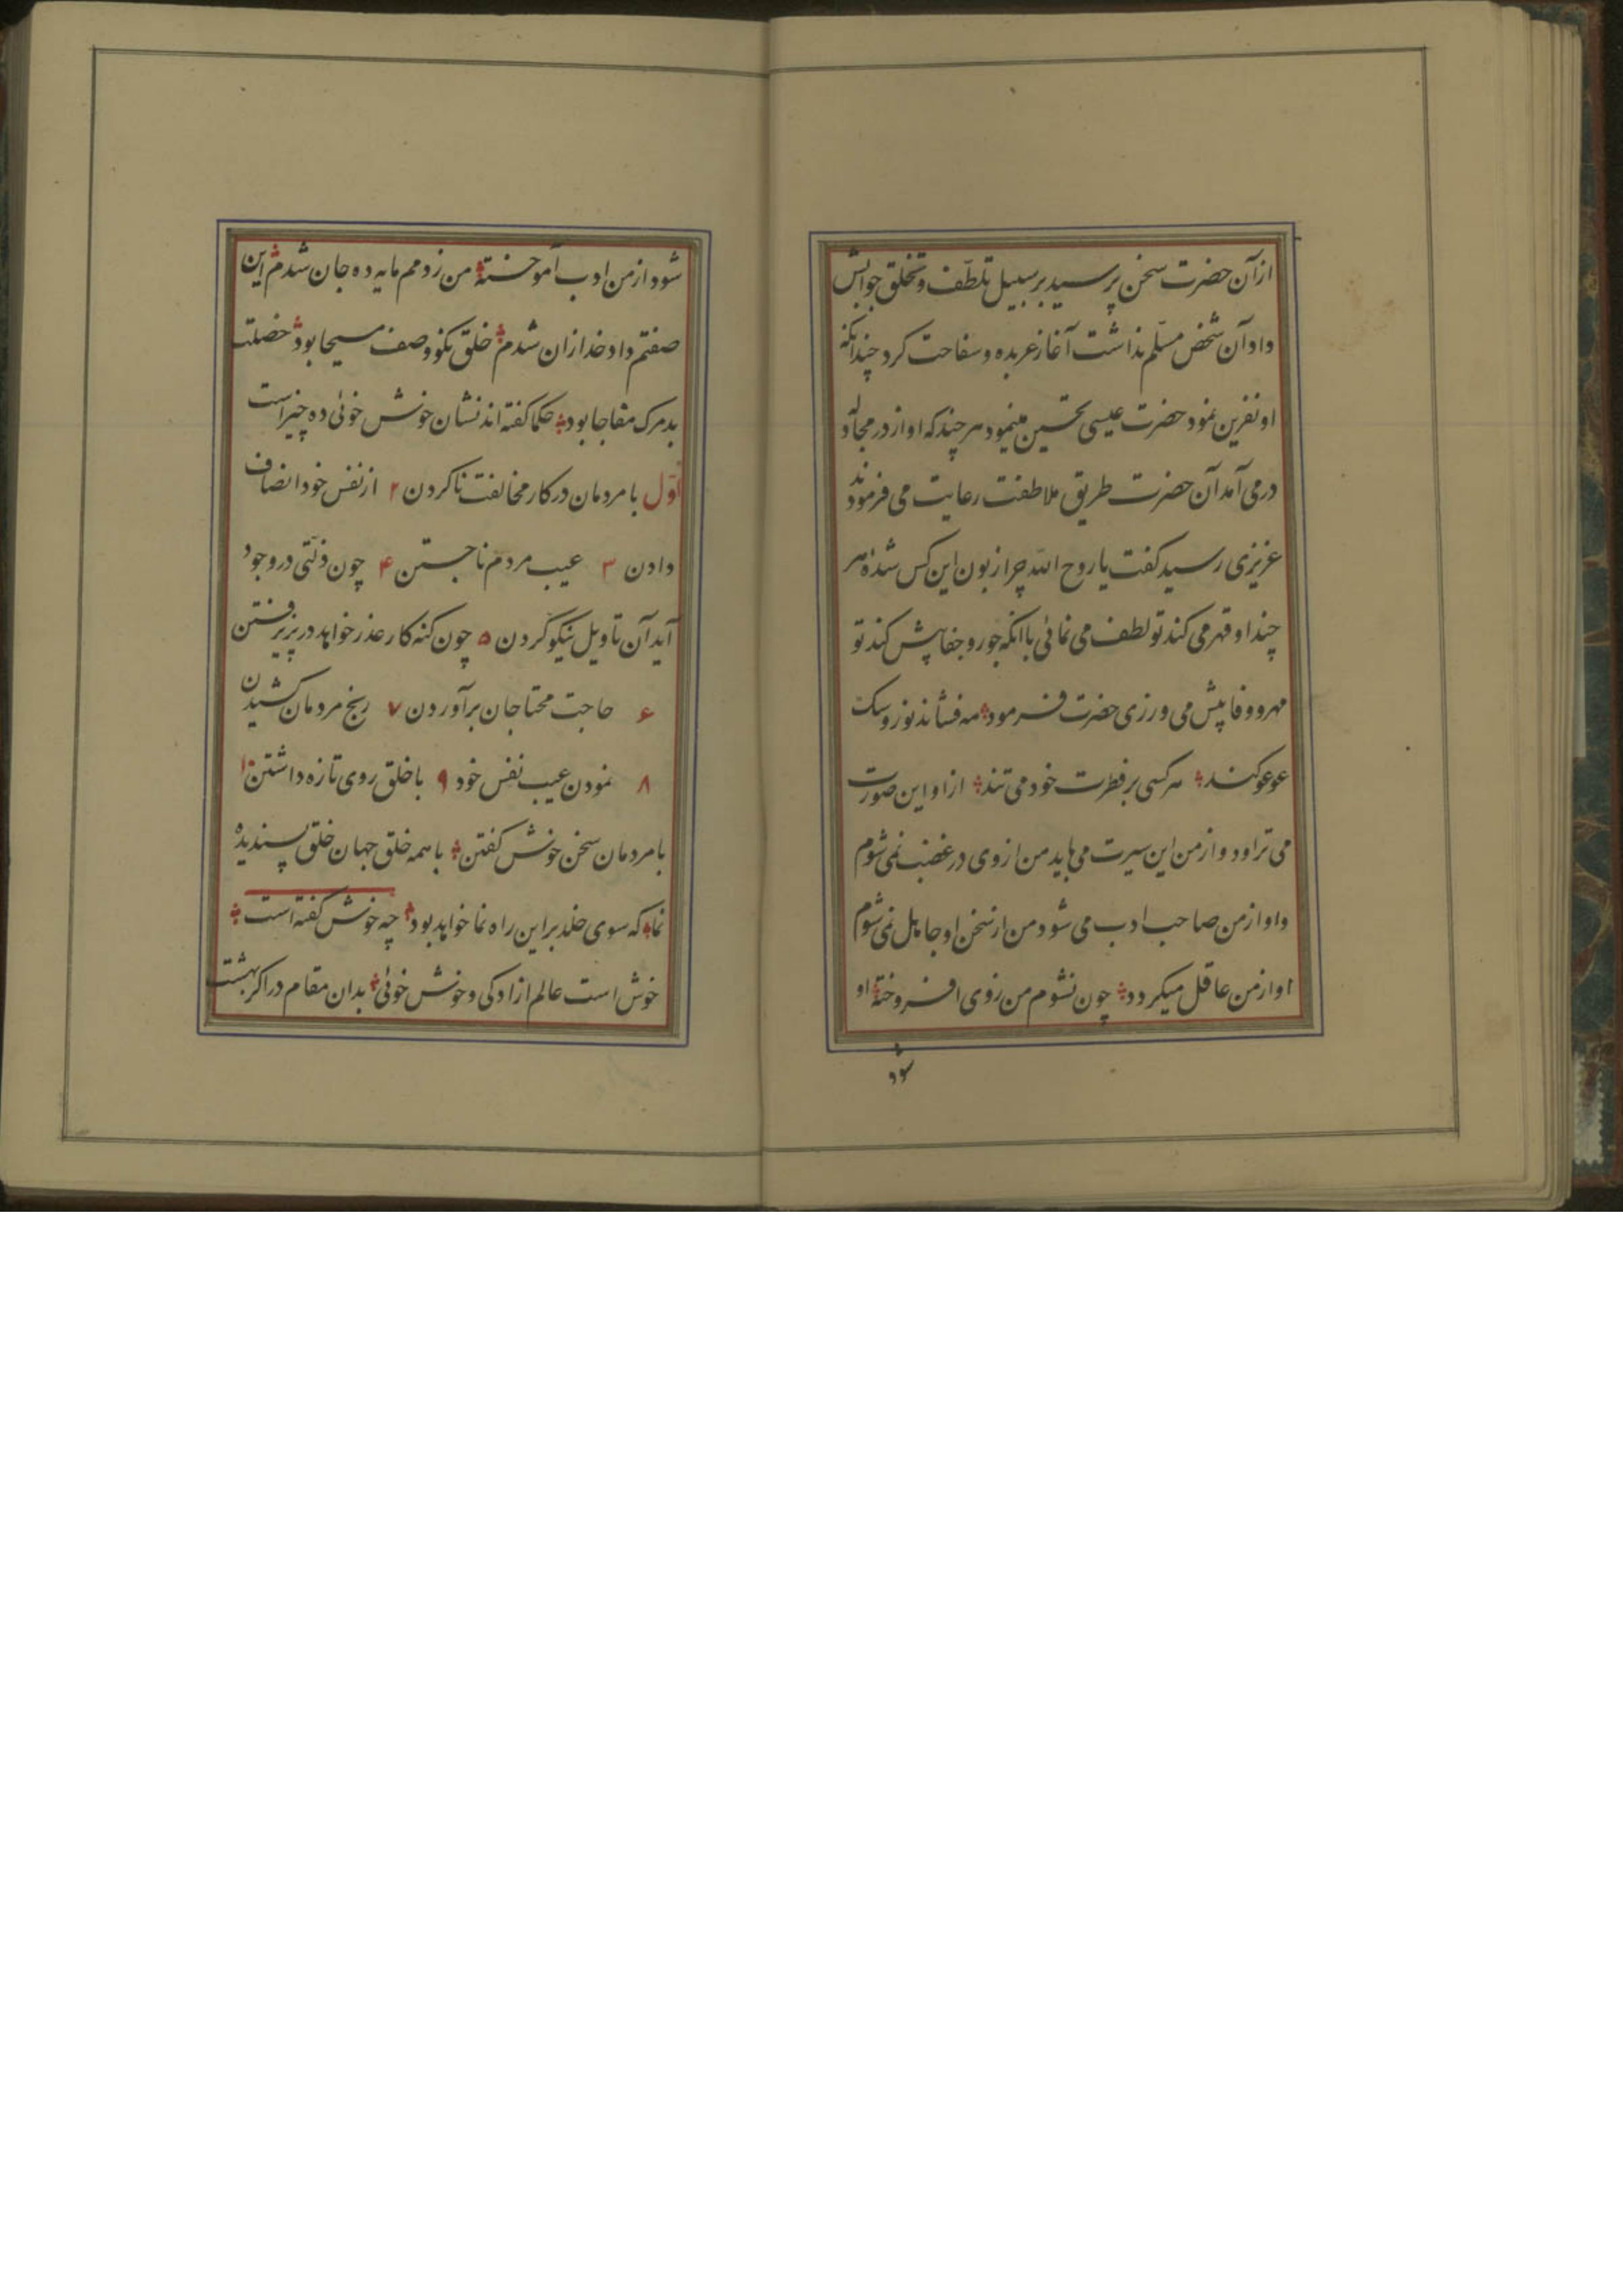 ازآن حضرت سخن پرسید بر سبیل تلطّف و تخلق جوابش
داد آن شخص مسلّم نداشت آغاز عربده و سفاحت کرد چندانکه
او نفرین نمود حضرت عیسی تحسین مینمود هر چند که او از در مجادله
در می آمد آن حضرت طریق ملاطفت رعایت می فرمودند
عزیزی رسید کفت یا روح الله چرا زبون این کس شدهٔ هر
چند او قهر می کند تو لطف می نمائی با انکه جور و جفا پیش کند تو
مهر و وفا پیش می ورزی حضرت فرمود مه فشاند نور و سک
عو عو کند هر کسی بر فطرت خود می تند از او این صورت
می تراود و از من این سیرت می باید من از وی در غضب نمی شوم
واو از من صاحب ادب می شود من از سخن او جاهل نمی شوم
او از من عاقل میکردد چون نشوم من زوی افروخته او
شود
شود از من ادب آموخته من ز دمم مایه ده جان شدم این
صفتم داد خدا زان شدم خلق نکو وصف مسیحا بود خصلت
بد مرک مفاجا بود حکما کفته اند نشان خوش خوئی ده چیز است
اوّل با مردمان در کار مخالفت ناکردن ۲ از نفس خود انصاف
دادن ۳ عیب مردم ناجستن ۴ چون ذلتی در وجود
آید آن تاویل نیکو کردن ۵ چون کنه کار عذر خواهد در پزیرفتن
۶ حاجت محتاجان برآوردن ۷ رنج مردمان کشیدن
۸ نمودن عیب نفس خود ۹ با خلق روی تازه داشتن ۱۰
با مردمان سخن خوش کفتن با همه خلق جهان خلق پسندیده
نما که سوی خلد برین راه نما خواهد بود چه خوش کفته است
خوش است عالم ازادکی و خوش خوئی بدان مقام درا کر بهشت